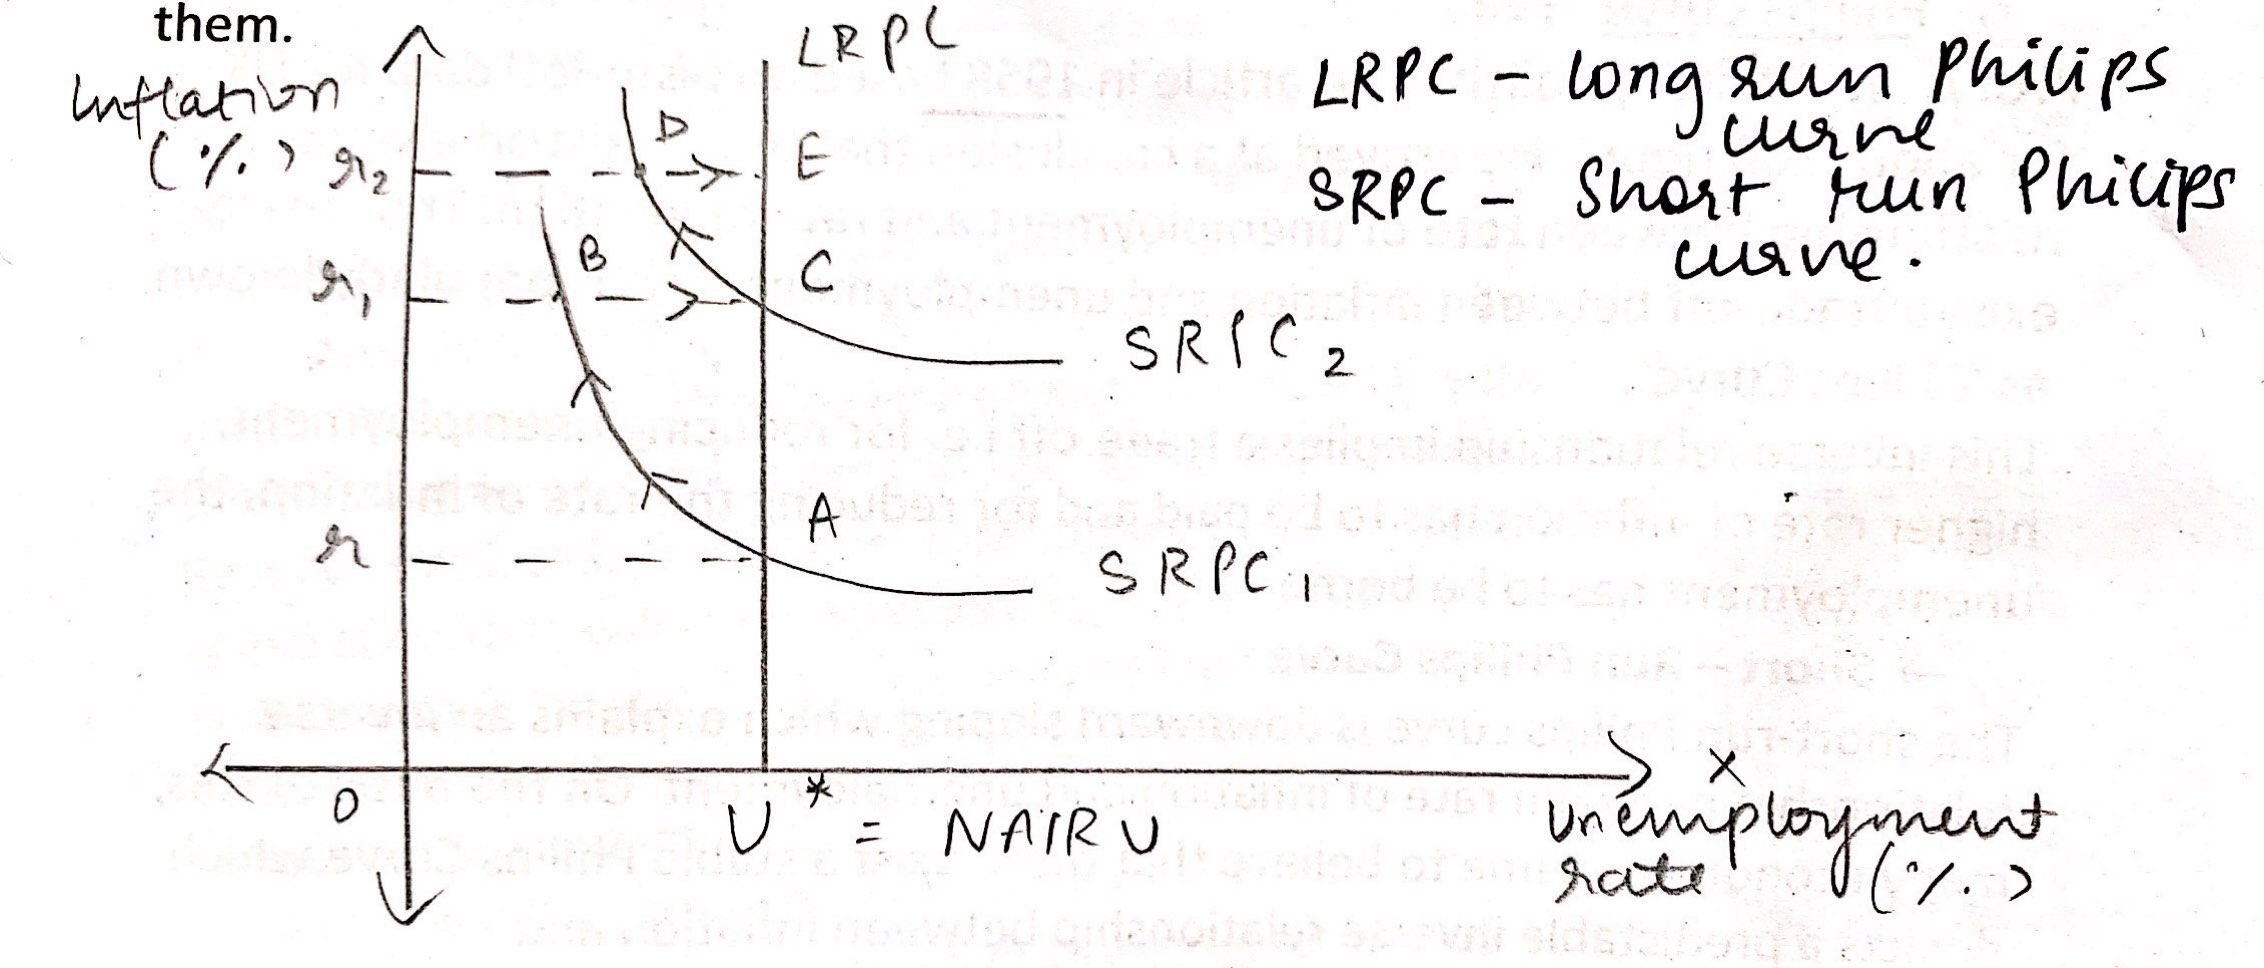 them.
Inflation
(%)
LRPC
LRPC - long run Philips
curve
SRPC - Short run Philips
curve.
r₂
D
E
r₁
B
C
SRPC₂
r
A
SRPC₁
O
U* = NAIRU
X
Unemployment
rate (%)